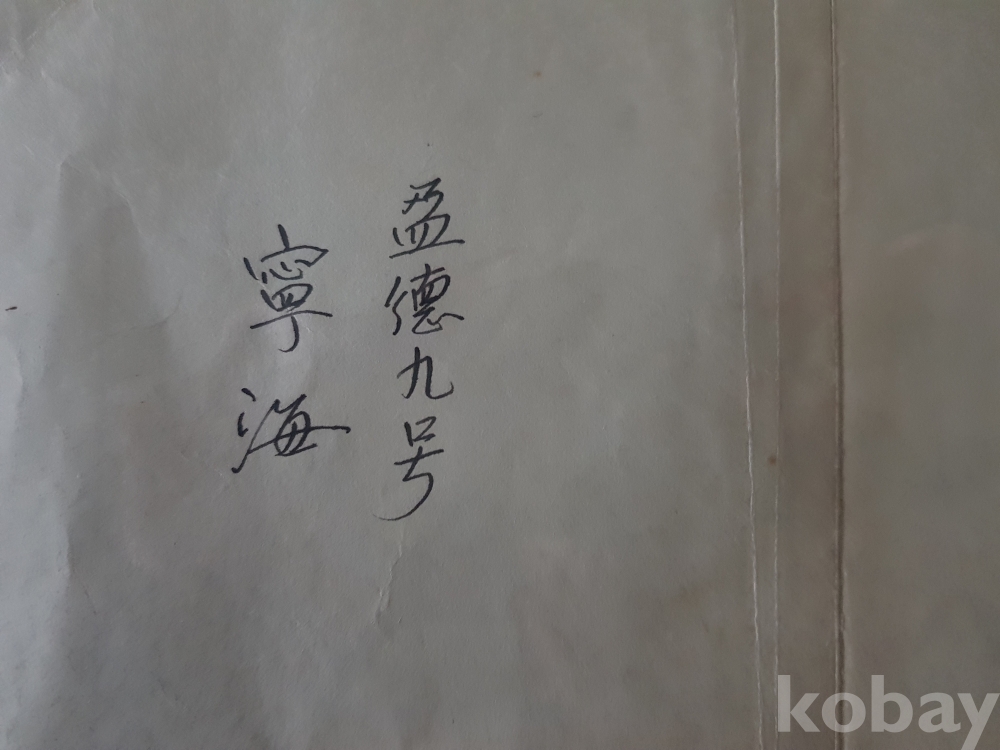 盈德九号
寧海
kobay